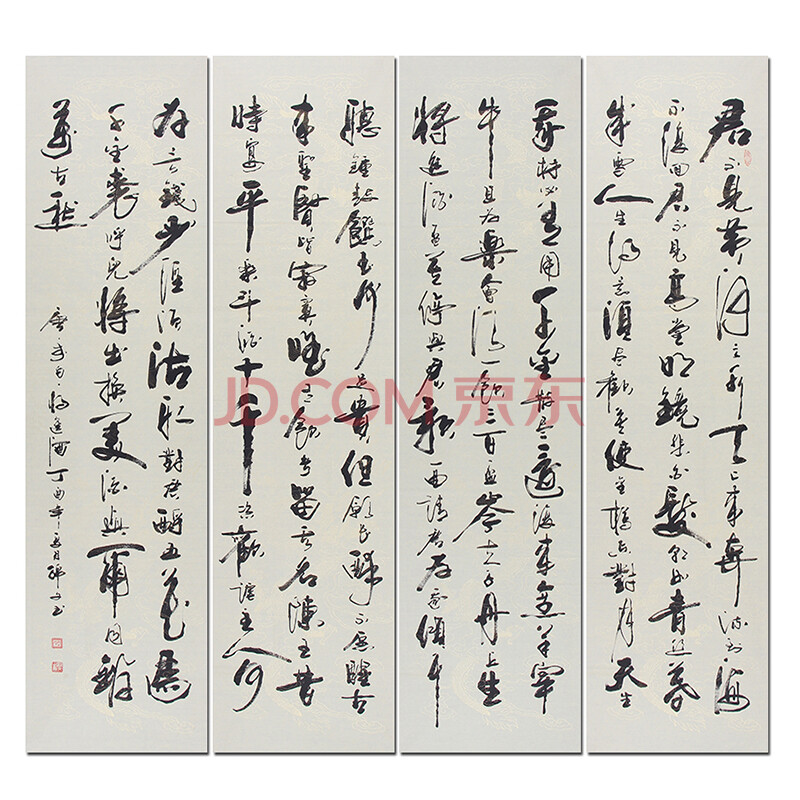 君不見黃河之水天上來奔流到海
不復回君不見高堂明鏡悲白髮朝如青絲暮
成雪人生得意須盡歡莫使金樽空對月天生
我材必有用千金散盡還復來烹羊宰
牛且為樂會須一飲三百杯岑夫子丹丘生
將進酒杯莫停與君歌一曲請君為我傾耳
聽鐘鼓饌玉何足貴但願長醉不願醒古
來聖賢皆寂寞惟有飲者留其名陳王昔
時宴平樂斗酒十千恣歡謔主人何
為言錢少徑須沽取對君酌五花馬
千金裘呼兒將出換美酒與爾同銷
萬古愁
唐李白將進酒丁酉年
JD.COM 京东